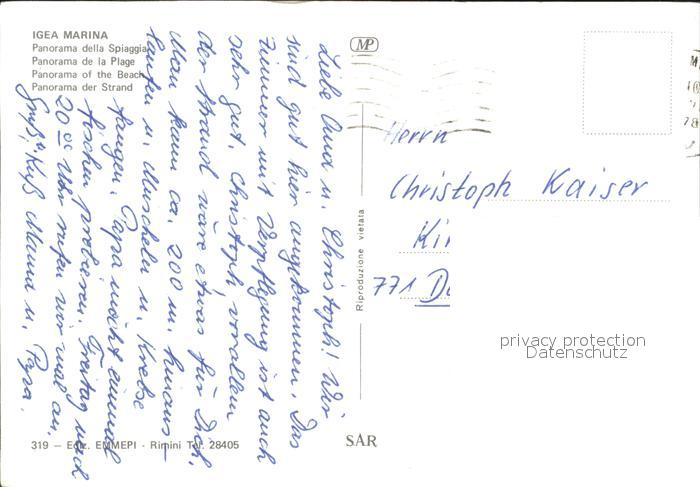 IGEA MARINA
Panorama della Spiaggia
Panorama de la Plage
Panorama of the Beach
Panorama der Strand
MP
Liebe Oma u. Christoph! Wir
sind gut hier angekommen. Das
Zimmer mit Verpflegung ist auch
sehr gut. Christoph vorallem
der Strand wäre etwas für Dich.
Man kann ca. 200 m. hinaus-
laufen u. Muscheln u. Krebse
fangen. Papa möcht einmal
fischen probieren. Freitag nach
20 Uhr rufen wir mal an.
Gruß u. Kuß Mama u. Papa.
Riproduzione vietata
Herrn
Christoph Kaiser
771
privacy protection
Datenschutz
319 - Ediz. EMMEPI - Rimini Tel. 28405
SAR